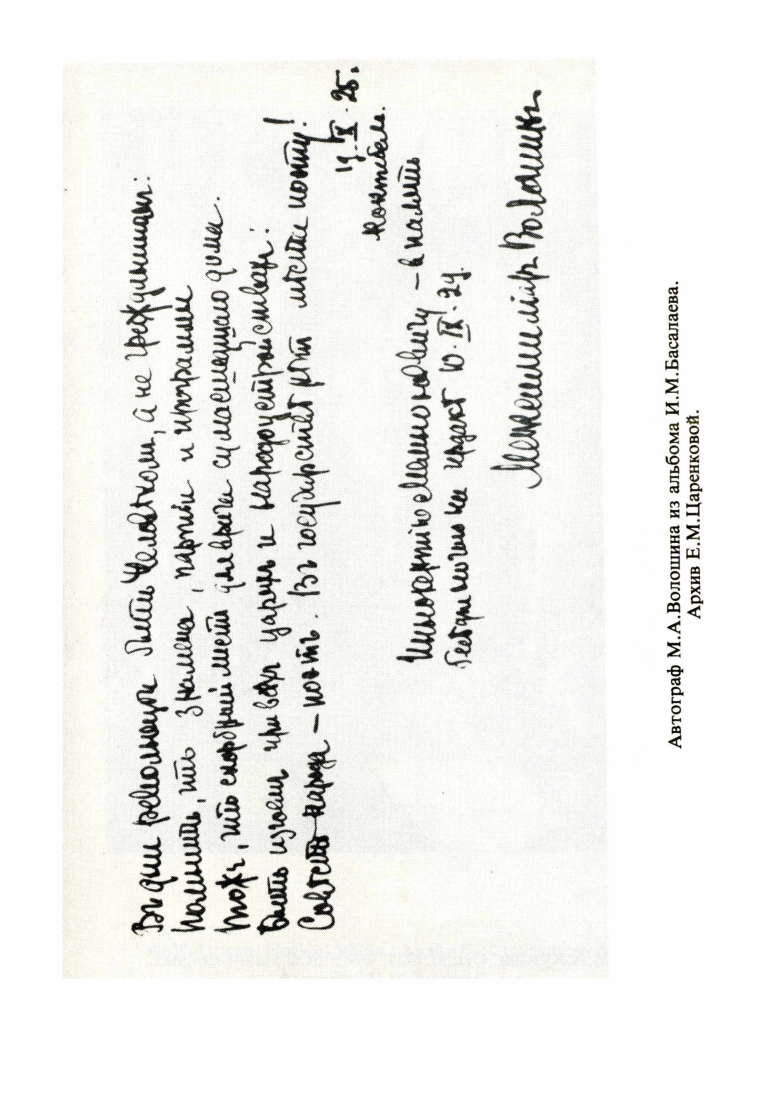 Въ дни революцiи быть Человѣкомъ, а не Гражданиномъ:
Помнить, что знамена, партiи и программы
Тоже, что скорбный листъ для врача сумасшедшаго дома.
Быть изгоемъ при всѣхъ царяхъ и народоустройствахъ:
Совѣсть народа – поэтъ. Въ государствѣ нѣтъ мѣста поэту!
19.IX.25.
Коктебель.
Иннокентию Мемноновичу – в память
беседы 10.IX.24.
Максимилiан Волошин
Автограф М.А.Волошина из альбома И.М.Басалаева.
Архив Е.М.Царенковой.